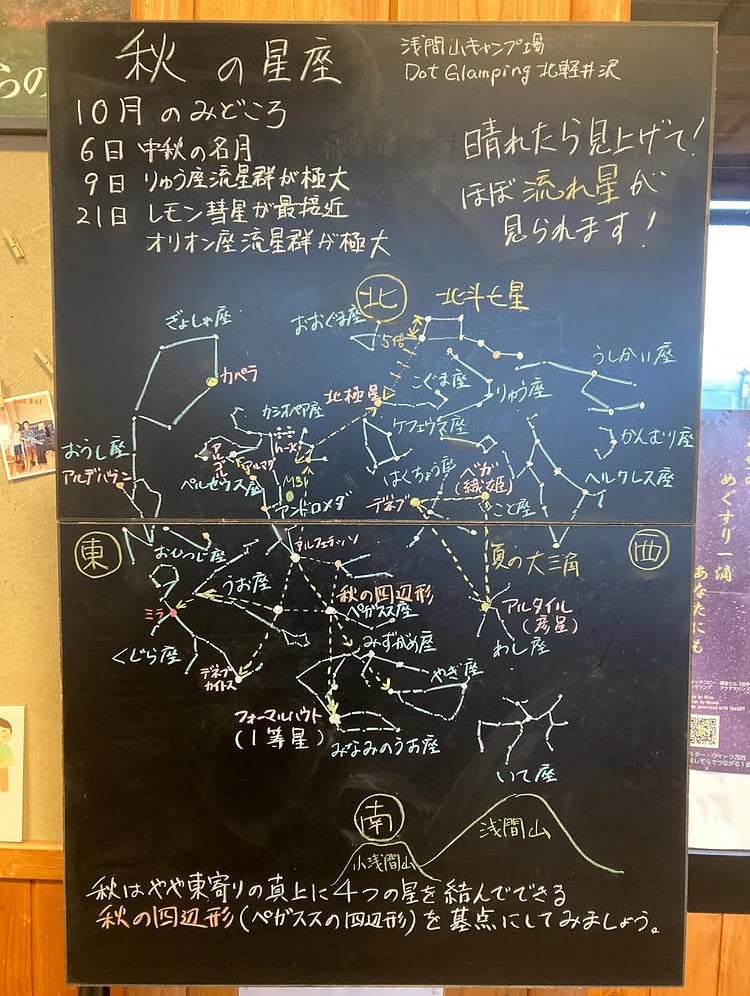 秋の星座
浅間山キャンプ場
Dot Glamping 北軽井沢
10月のみどころ
6日 中秋の名月
9日 りゅう座流星群が極大
21日 レモン彗星が最接近
オリオン座流星群が極大
晴れたら見上げて!
ほぼ流れ星が
見られます!
北
北斗七星
ぎょしゃ座
おおぐま座
5倍
うしかい座
カペラ
こぐま座
りゅう座
北極星
カシオペア座
ケフェウス座
かんむり座
おうし座
アルデバラン
ペルセウス座
M31
はくちょう座
ベガ
(織姫)
ヘルクレス座
デネブ
こと座
アンドロメダ
東
西
おひつじ座
アルフェラッツ
夏の大三角
うお座
秋の四辺形
ペガスス座
アルタイル
(彦星)
ミラ
わし座
みずがめ座
くじら座
デネブ
カイトス
やぎ座
フォーマルハウト
(1等星)
みなみのうお座
いて座
南
浅間山
小浅間山
秋はやや東寄りの真上に4つの星を結んでできる
秋の四辺形(ペガススの四辺形)を基点にしてみましょう。
めぐすり一滴
あなたにも